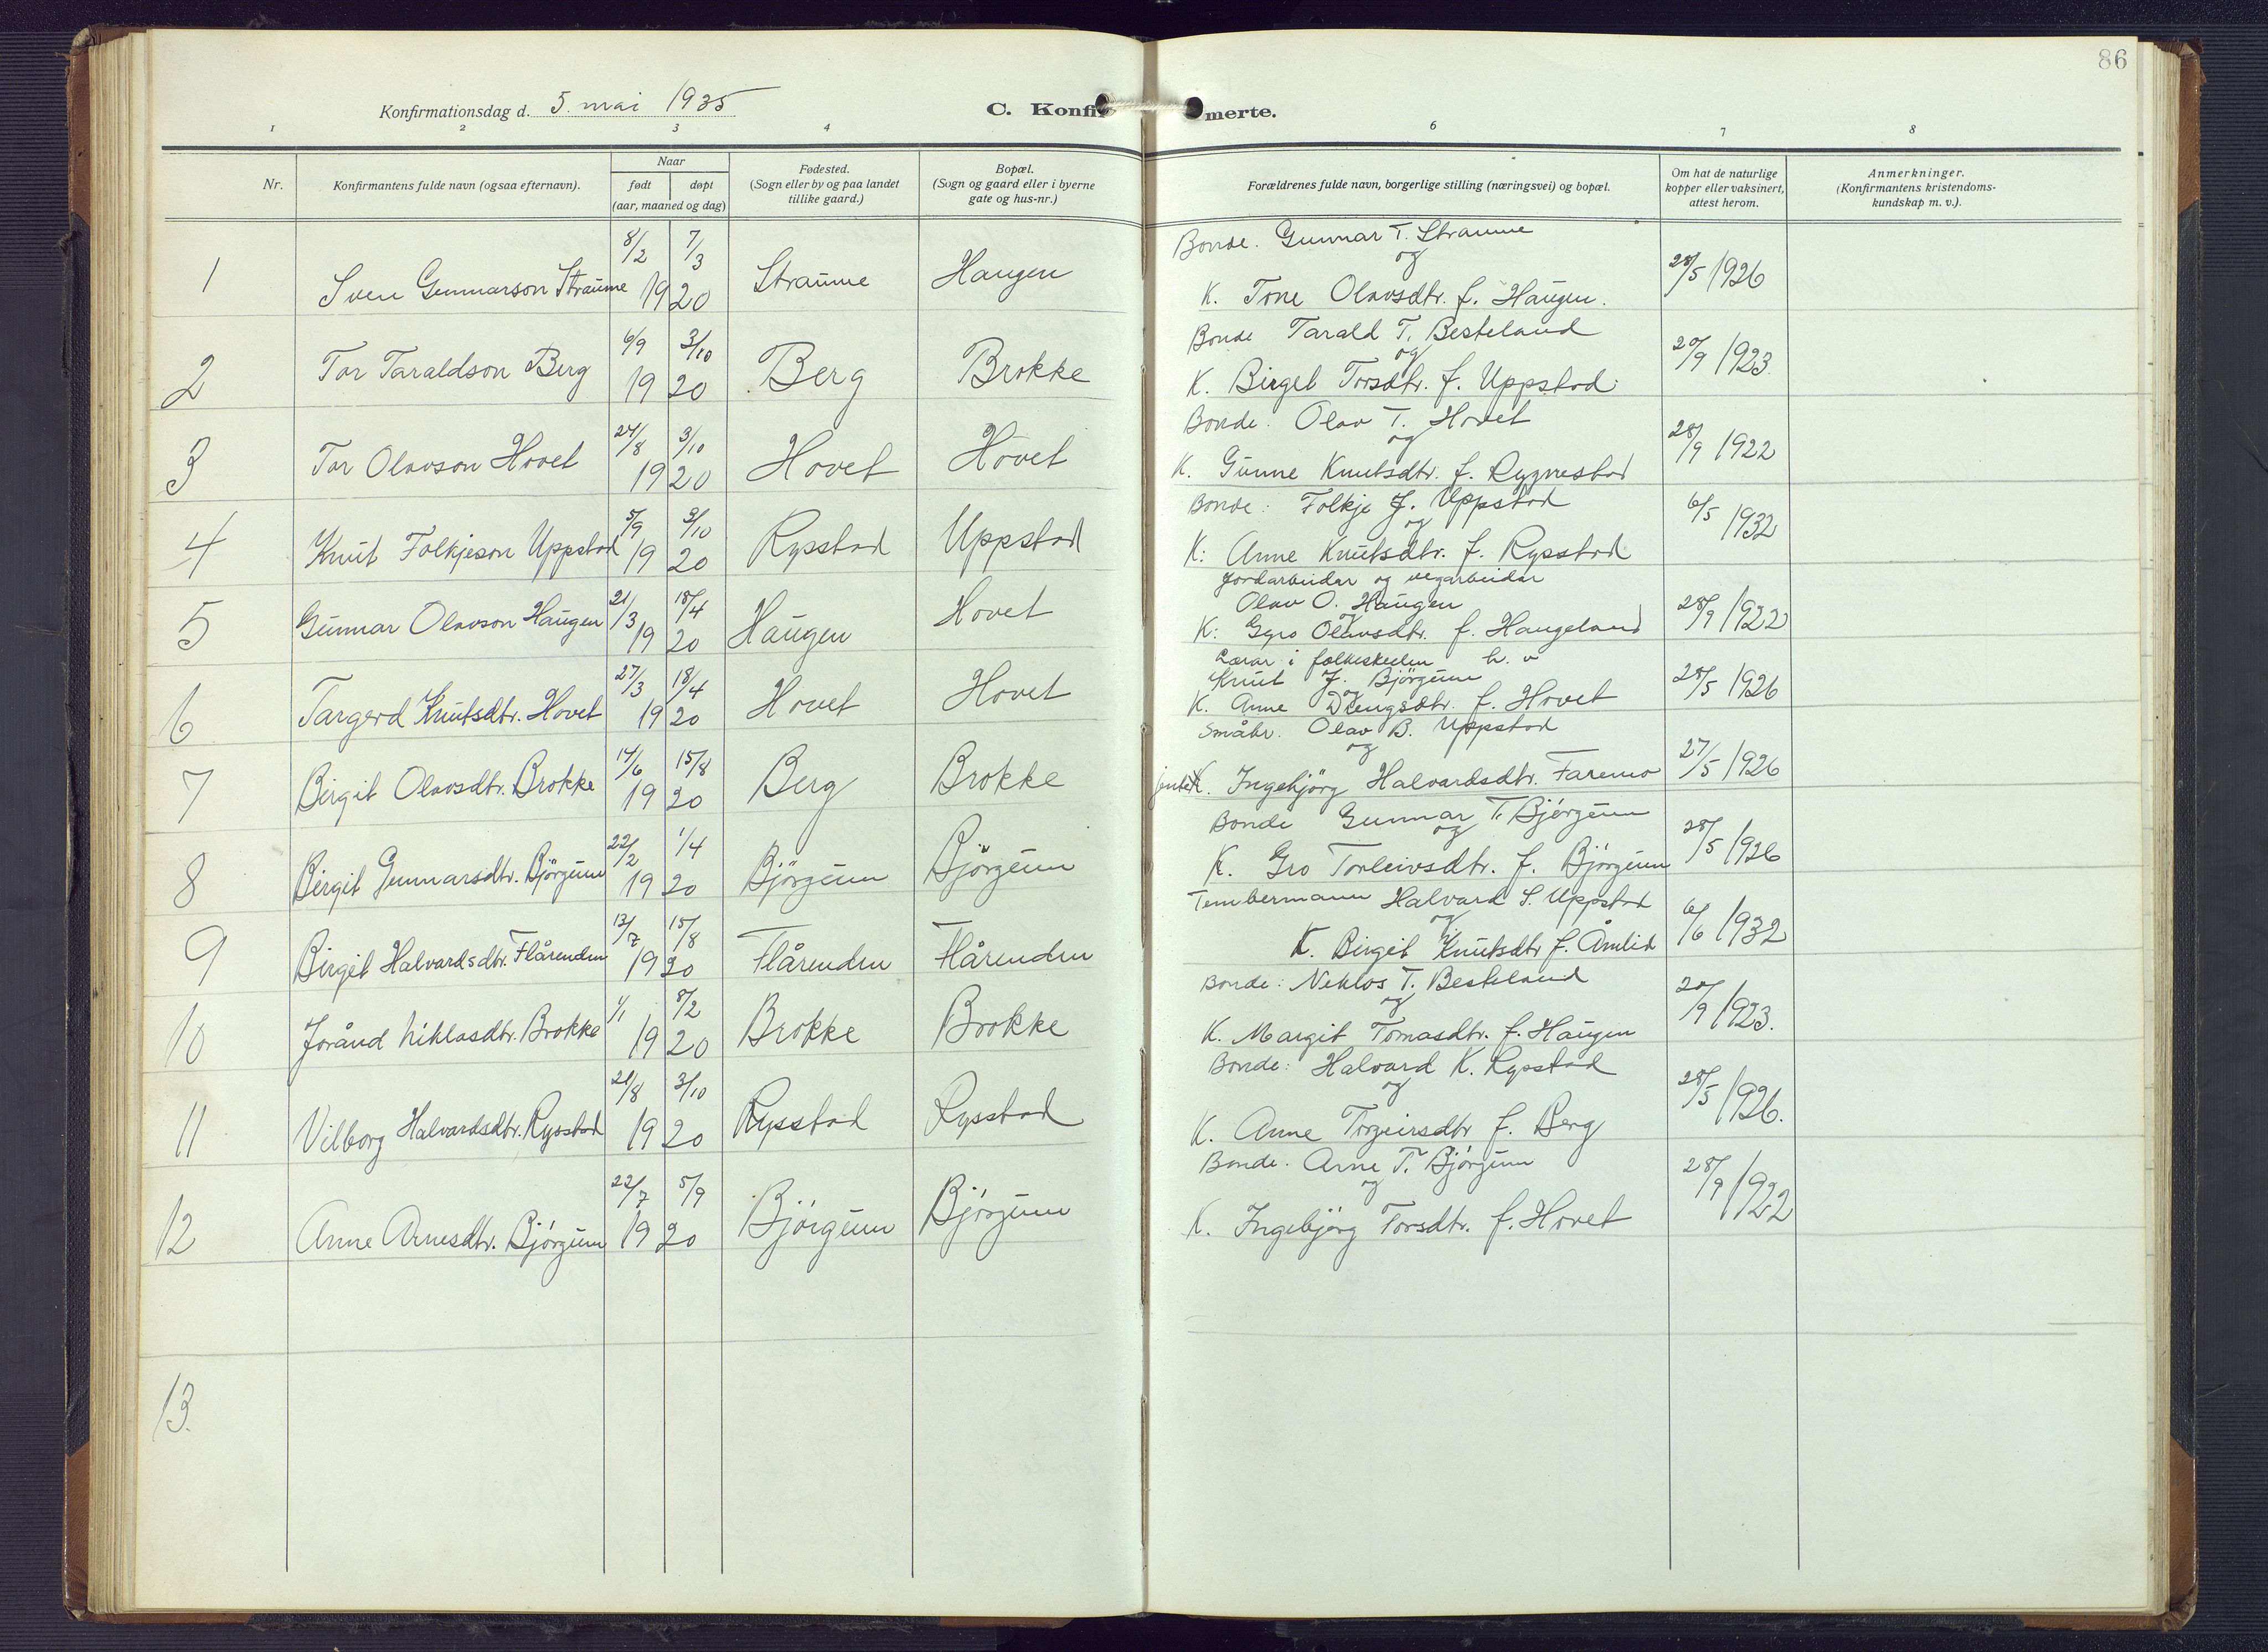 86
Konfirmationsdag d. 5. mai 1935
C. Konfirmerte.
1 2 3 4 6 7 8
Nr.
Konfirmantens fulde navn (ogsaa efternavn).
Naar
født døpt
(aar, maaned og dag)
Fødested.
(Sogn eller by og paa landet
tillike gaard.)
Bopæl.
(Sogn og gaard eller i byerne
gate og hus-nr.)
Forældrenes fulde navn, borgerlige stilling (næringsvei) og bopæl.
Om hat de naturlige
kopper eller vaksinert,
attest herom.
Anmerkninger.
(Konfirmantens kristendoms-
kundskap m. v.).
8/2 7/3
1 Sven Gunnarson Straume 1920 Straume Haugen
Bonde. Gunnar T. Straume
og
K. Tone Olavsdtr. f. Haugen.
28/5 1926
6/9 3/10
2 Tor Taraldson Berg 1920 Berg Brokke
Bonde Tarald T. Besteland
og
K. Birget Torsdtr. f. Uppstad.
20/9 1923.
24/8 3/10
3 Tor Olavson Hovet 1920 Hovet Hovet
Bonde: Olav T. Hovet
og
K. Gunne Knutsdtr. f. Rygnestad
28/9 1922
5/9 3/10
4 Knut Folkjeson Uppstad 1920 Rysstad Uppstad
Bonde: Folkje J. Uppstad
og
K: Anne Knutsdtr. f. Rysstad.
6/5 1932
21/3 18/4
5 Gunnar Olavson Haugen 1920 Haugen Hovet
Jordarbeidar og vegarbeidar
Olav O. Haugen
og
K: Gyro Olavsdtr. f. Haugeland
28/9 1922
27/3 18/4
6 Targerd Knutsdtr. Hovet 1920 Hovet Hovet
Lærar i folkeskulen h. v
Knut J. Bjørgum
og
K. Anne Drengsdtr. f. Hovet
28/5 1926
14/6 15/8
7 Birgit Olavsdtr. Brokke 1920 Berg Brokke
Småbr. Olav B. Uppstad
og
K. Ingebjörg Halvardsdtr. Faremo
27/5 1926
22/2 1/4
8 Birgit Gunnarsdtr. Björgum 1920 Björgum Björgum
Bonde Gunnar T. Björgum
og
K. Gro Torleivsdtr. f. Björgum
28/5 1926
13/7 15/8
9 Birgit Halvardsdtr. Flårenden 1920 Flårenden Flårenden
Tembermann Halvard S. Uppstad
og
K. Birgit Knutsdtr f. Åmlid
6/6 1932
1/1 8/2
10 Joránd Niklasdtr. Brokke 1920 Brokke Brokke
Bonde: Neklos T. Besteland
og
K. Margit Tomasdtr. f. Haugen
20/9 1923.
21/8 3/10
11 Vilborg Halvardsdtr. Rysstad 1920 Rysstad Rysstad
Bonde: Halvard K. Rysstad
og
K. Anne Torgeirsdtr f. Berg
28/5 1926.
22/7 5/9
12 Anne Arnesdtr. Björgum 1920 Björgum Björgum
Bonde. Arne T. Björgum
og
K. Ingebjörg Torsdtr. f. Hovet
28/9 1922
13.